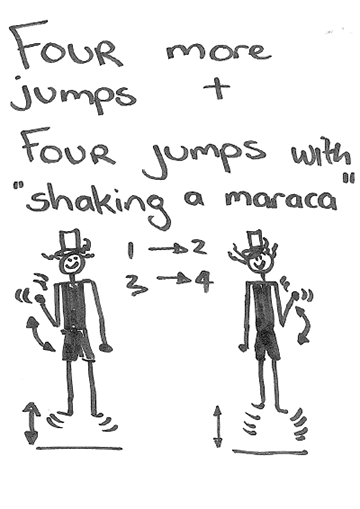 FOUR more
jumps +
FOUR jumps with
"shaking a maraca"
1 → 2
3 → 4